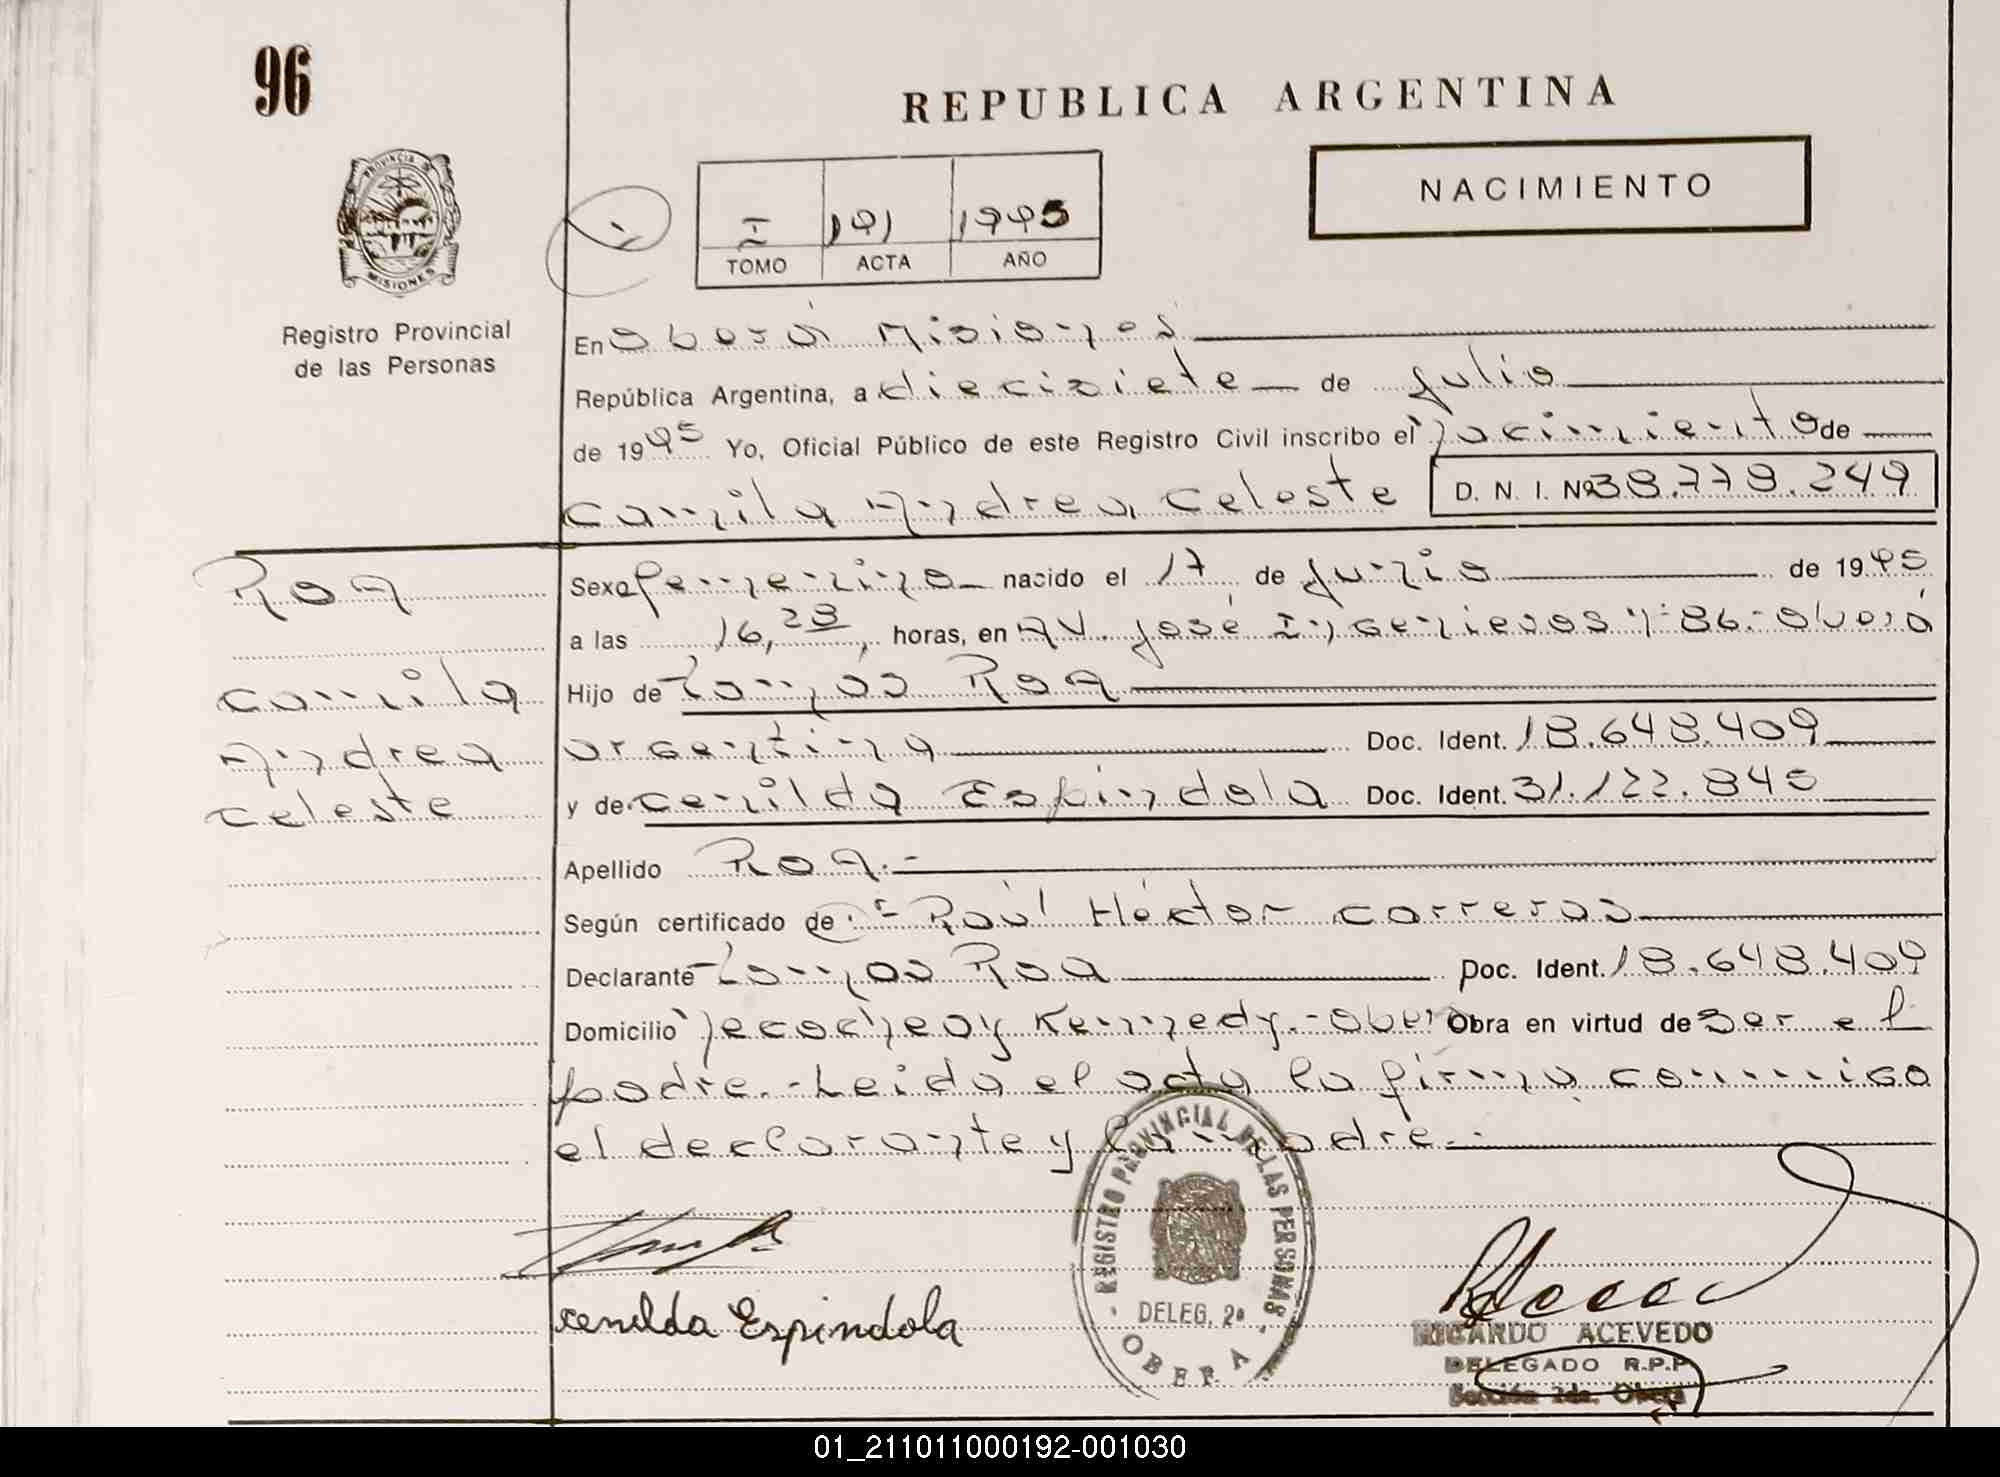 96
REPUBLICA ARGENTINA
PROVINCIA DE MISIONES
NACIMIENTO
I 191 1995
TOMO ACTA AÑO
Registro Provincial
de las Personas
En Oberá Misiones
República Argentina, a diecisiete de Julio
de 1995 Yo, Oficial Público de este Registro Civil inscribo el nacimiento de
Camila Andrea Celeste D. N. I. Nº 38.778.249
Roa
Sexo femenino nacido el 17 de Junio de 1995
a las 16,28 horas, en AV. José Ingenieros nº 86.- Oberá
Camila
Hijo de Tomás Roa
Andrea
argentina Doc. Ident. 18.648.409
Celeste
y de Cenilda Espíndola Doc. Ident. 31.122.845
Apellido Roa.-
Según certificado de Raúl Héctor Carreras
Declarante Tomás Roa Doc. Ident. 18.648.409
Domicilio Necochea y Kennedy.- Oberá Obra en virtud de ser el
padre.- Leida el acta la firma conmigo
el declarante y la madre.-
cenilda Espindola
REGISTRO PROVINCIAL DE LAS PERSONAS
DELEG. 2ª
OBERA
RICARDO ACEVEDO
DELEGADO R.P.P
Sección 2da. Oberá
01_211011000192-001030